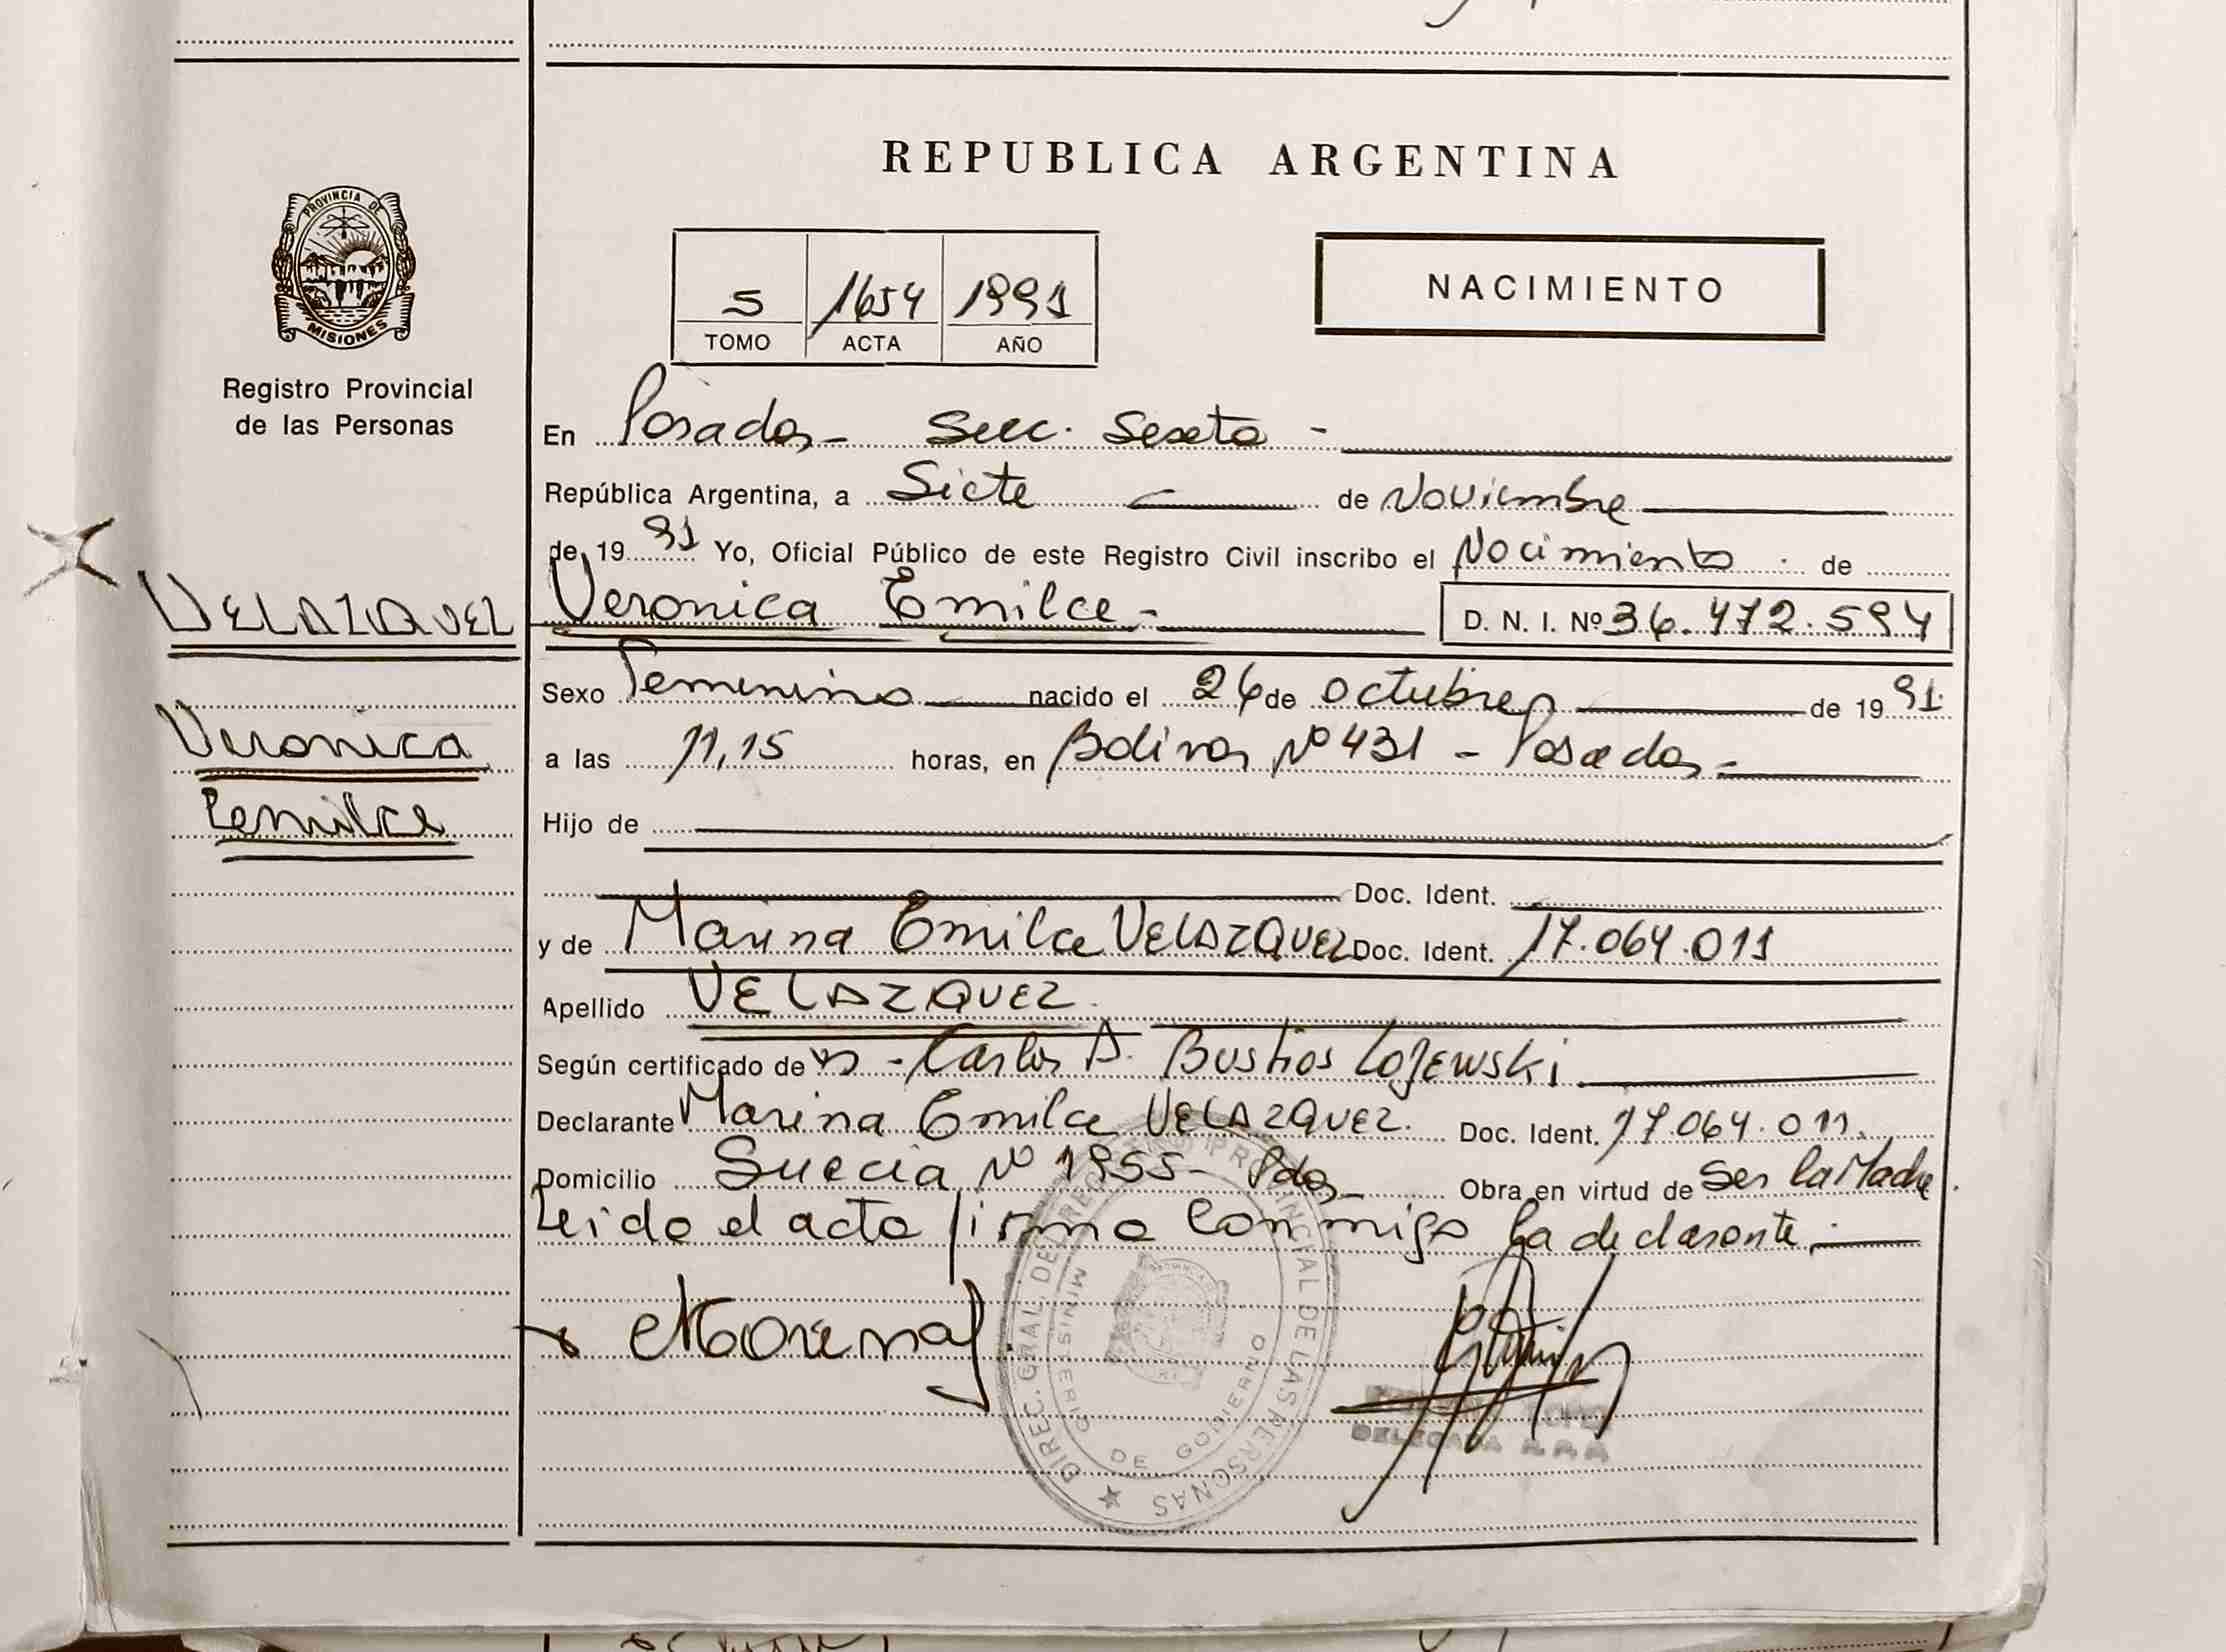 REPUBLICA ARGENTINA
PROVINCIA DE
MISIONES
Registro Provincial
de las Personas
5 1654 1991
TOMO ACTA AÑO
NACIMIENTO
En Posadas - Secc. Sexta -
República Argentina, a Siete de Noviembre
de 19 91 Yo, Oficial Público de este Registro Civil inscribo el Nacimiento de
VELAZQUEZ
Veronica Emilce - D. N. I. Nº 36.472.594
Sexo Femenino nacido el 26 de octubre de 19 91.
Veronica
a las 11,15 horas, en Bolivar Nº 431 - Posadas -
Emilce
Hijo de
Doc. Ident.
y de Marina Emilce VELAZQUEZ Doc. Ident. 17.064.011
Apellido VELAZQUEZ.
Según certificado de - Carlos A. Bustios Lojewski
Declarante Marina Emilce VELAZQUEZ. Doc. Ident. 17.064.011.
Domicilio Suecia Nº 1955 - Pdas - Obra en virtud de Ser la Madre.
Leido el acta firma conmigo la declarante.
DIREC. GRAL. DEL REGISTRO PROVINCIAL DE LAS PERSONAS
MINISTERIO DE GOBIERNO
DELEGADA